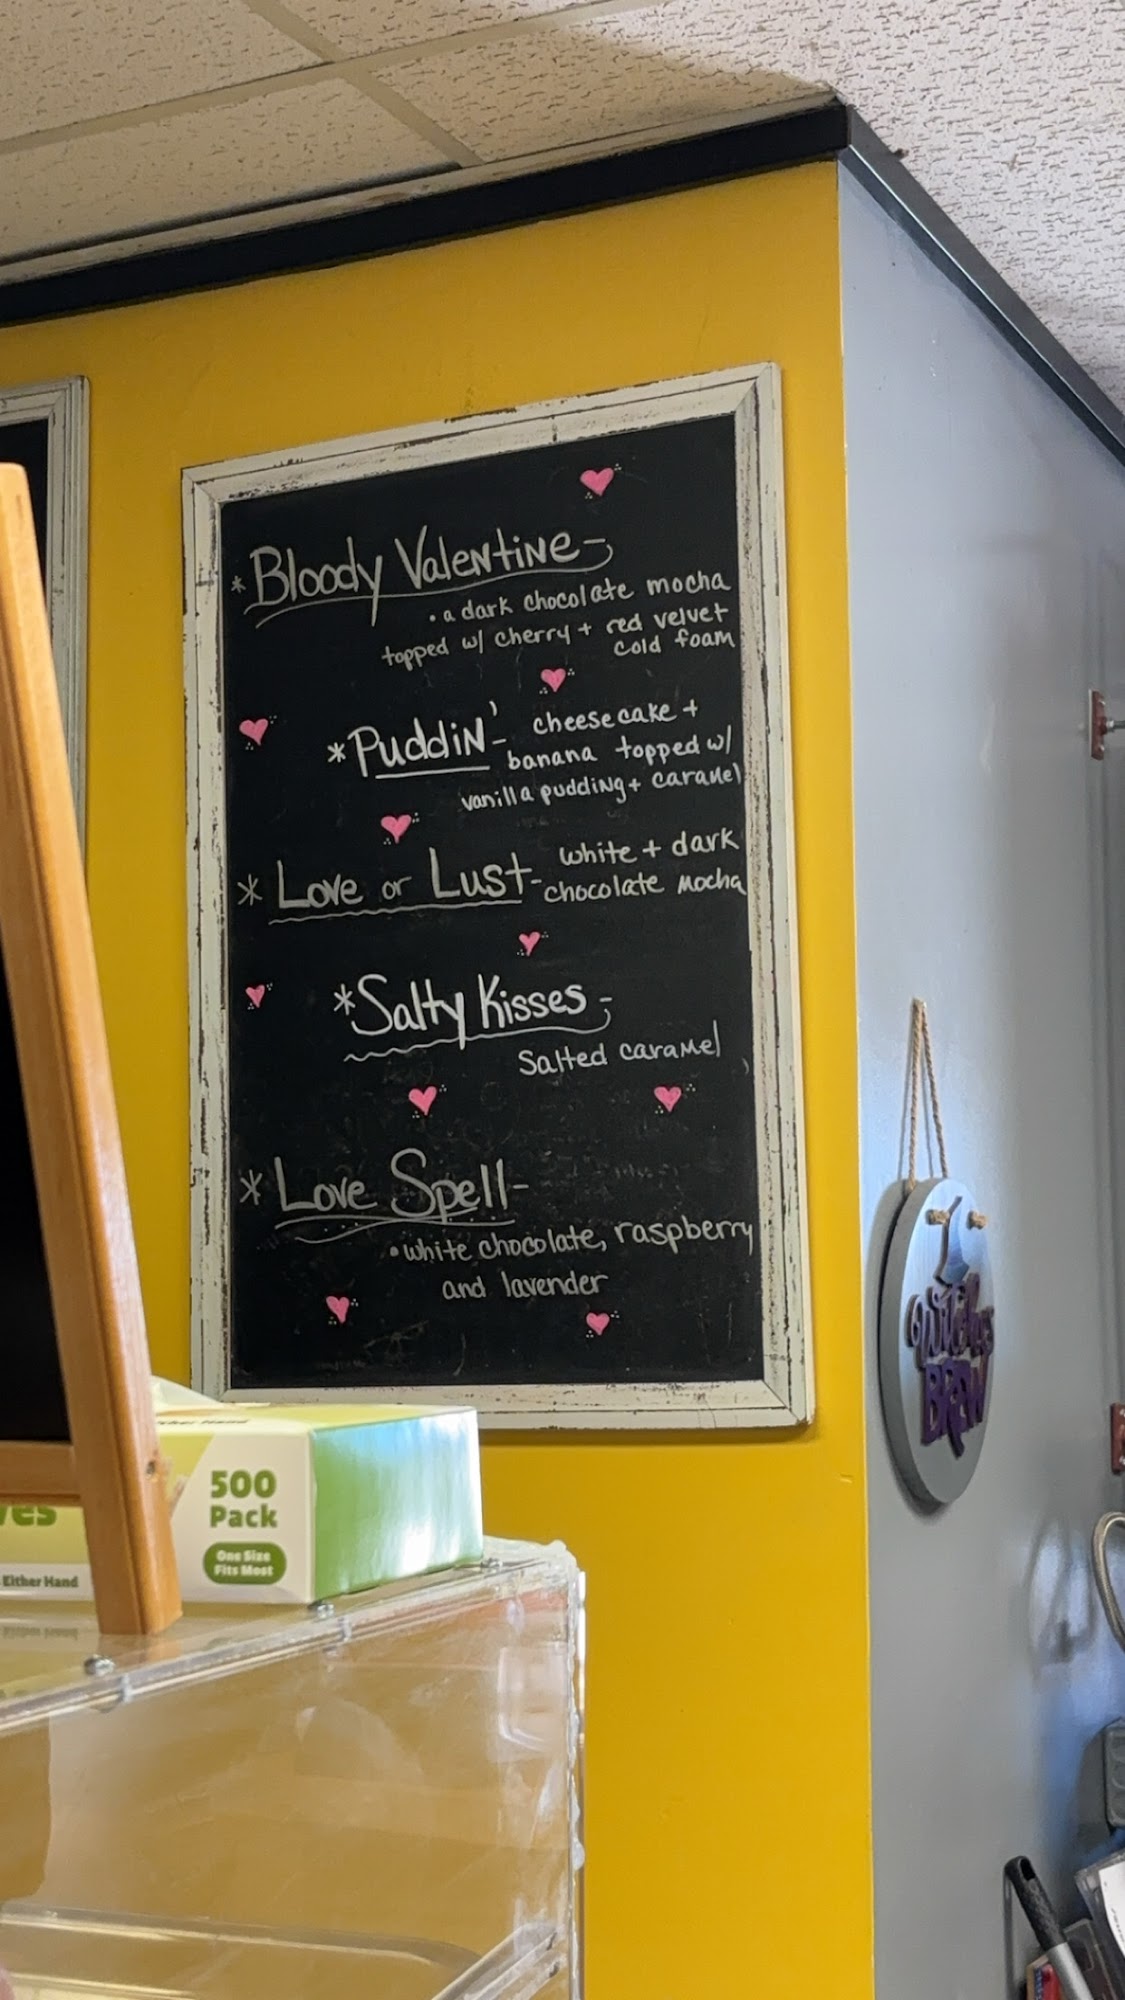 * Bloody Valentine -
• a dark chocolate mocha
topped w/ cherry + red velvet
cold foam
* Puddin' - cheesecake +
banana topped w/
vanilla pudding + caramel
* Love or Lust - white + dark
chocolate mocha
* Salty Kisses -
Salted caramel
* Love Spell -
• white chocolate, raspberry
and lavender
Witches
BREW
500
Pack
One Size
Fits Most
Either Hand